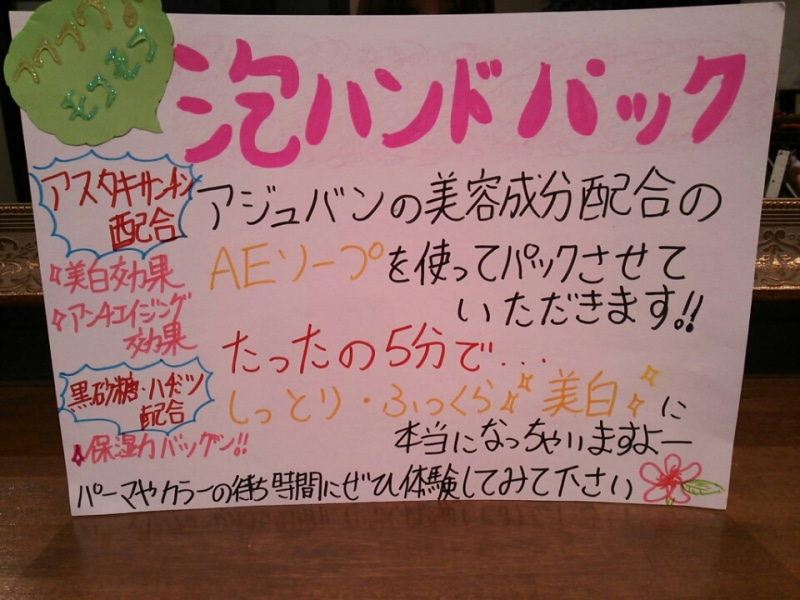 モコモコ
泡ハンドパック
アスタキサンチン
配合
美白効果
アンチエイジング
効果
黒砂糖・ハチミツ
配合
保湿力バツグン!!
アジュバンの美容成分配合の
AEソープを使ってパックさせて
いただきます!!
たったの5分で...
しっとり・ふっくら美白に
本当になっちゃいますよー
パーマやカラーの待ち時間にぜひ体験してみて下さい